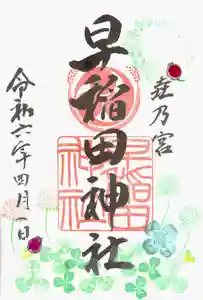 壺乃宮
早稲田神社
令和六年四月一日
早稲田
神社